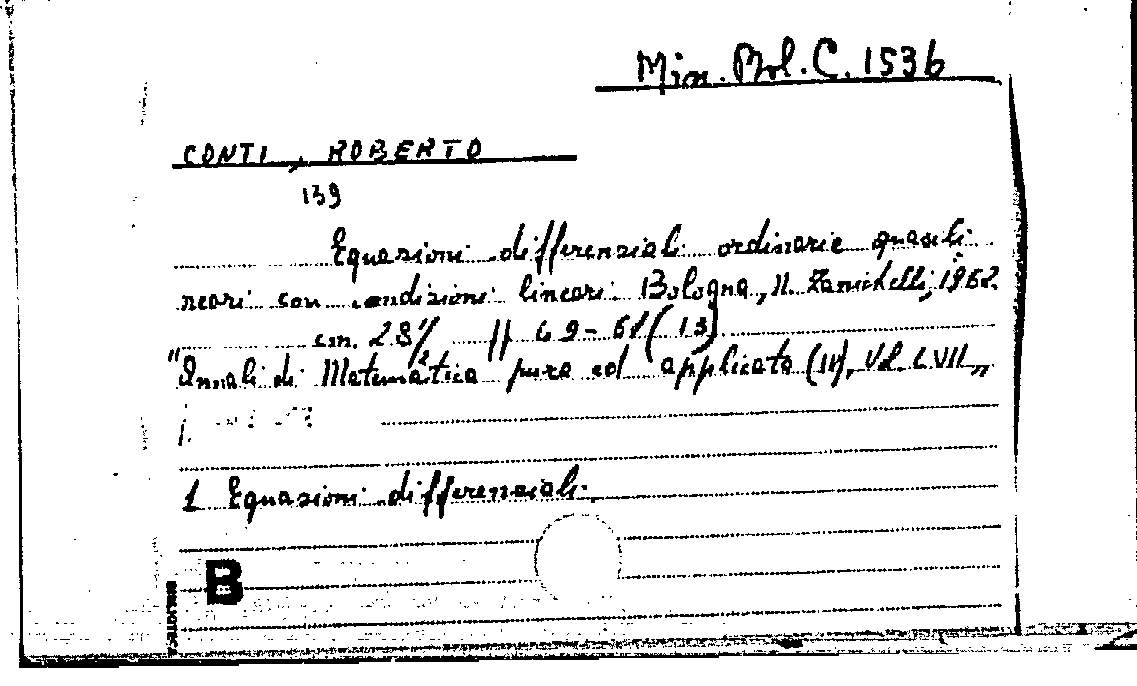 Min. Bol. C. 1536
CONTI, ROBERTO
139
Equazioni differenziali ordinarie quasili
neari con condizioni lineari. Bologna, N. Zanichelli, 1962.
cm. 28½ pp 49-61 (13)
"Annali di Matematica pura ed applicata (IV), Vol. LVII,,
1 Equazioni differenziali.
B
BIBLIOTECA